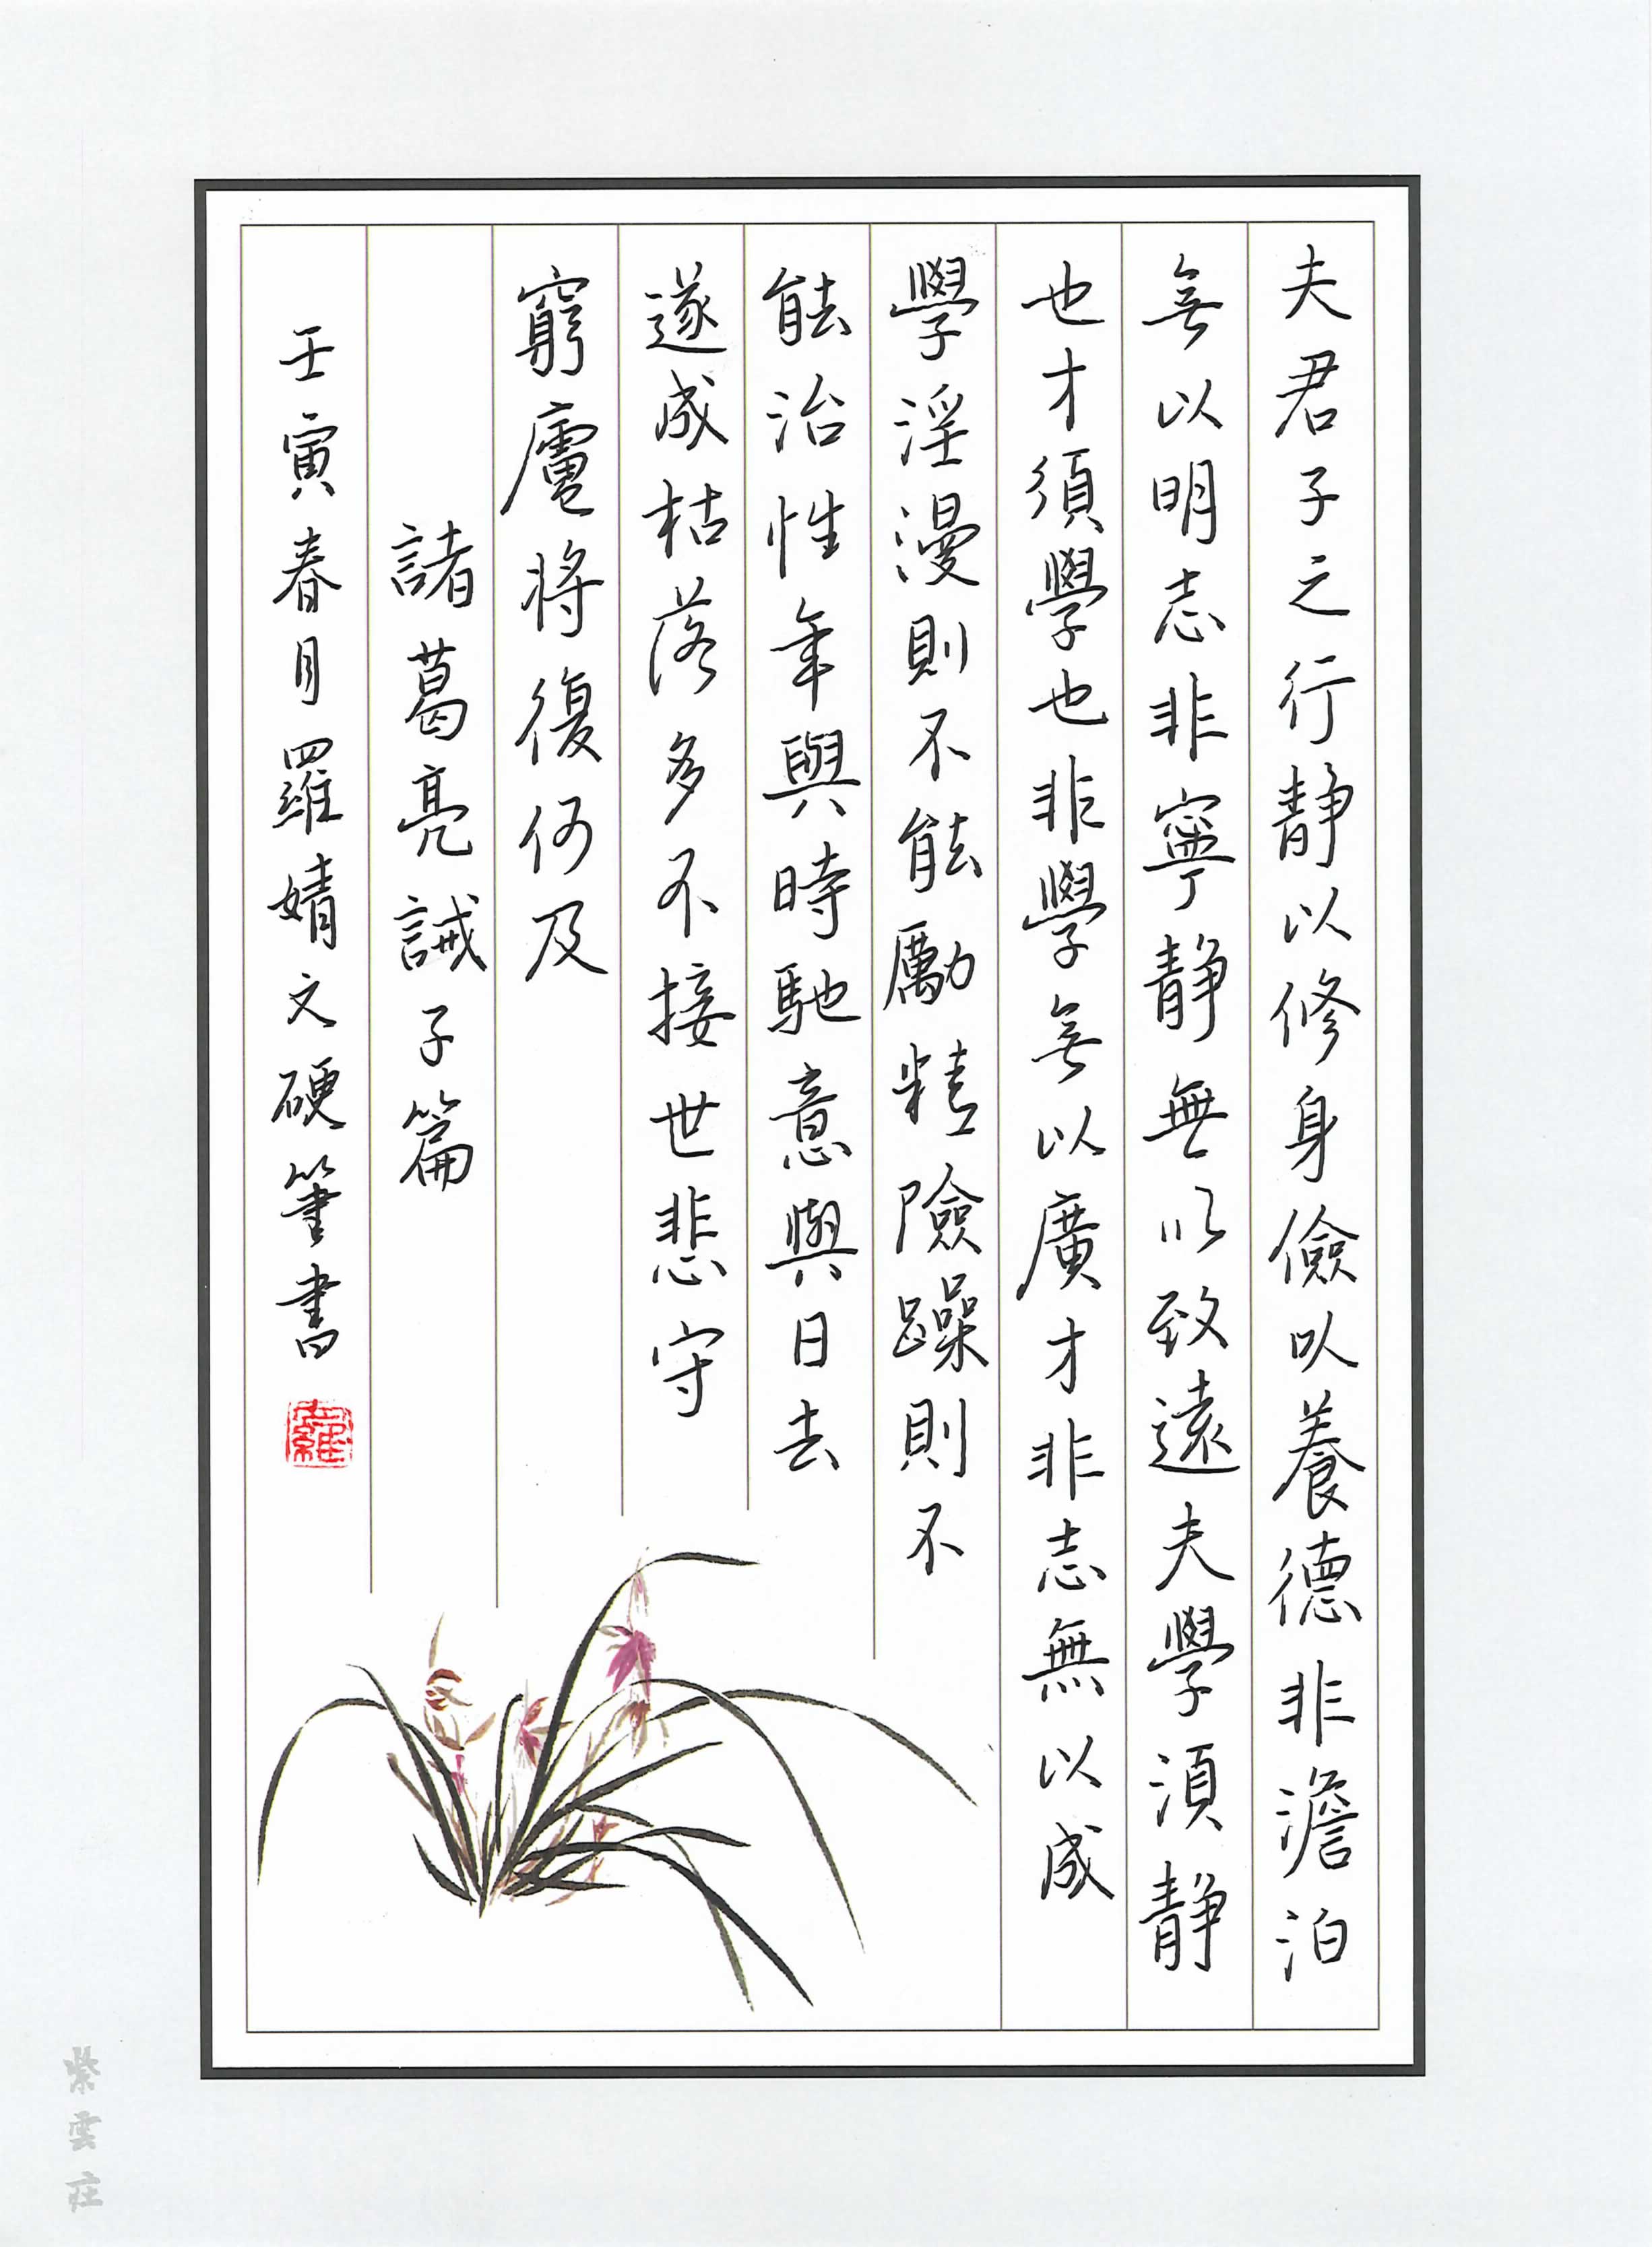 夫君子之行静以修身儉以養德非澹泊
無以明志非寧静無以致遠夫學須静
也才須學也非學無以廣才非志無以成
學淫漫則不能勵精險躁則不
能治性年與時馳意與日去
遂成枯落多不接世悲守
窮廬將復何及
諸葛亮誡子篇
壬寅春月羅婧文硬筆書
羅
紫雲莊